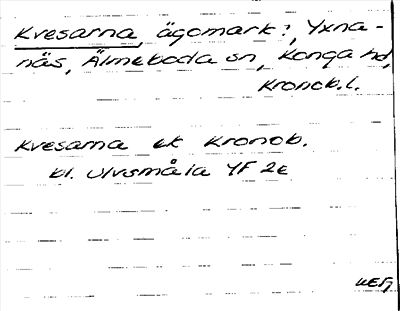 Kvesarna, ägomark?, Yxna-
näs, Älmeboda sn, Konga hd,
Kronob.l.
Kvesarna ek Kronob.
bl. Ulvsmåla YF 2e